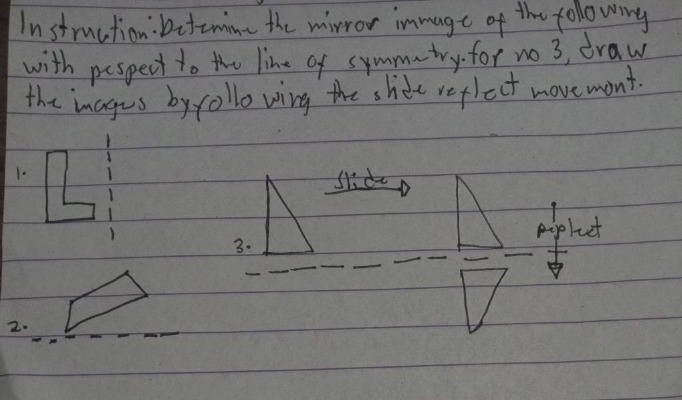 Instruction: Determine the mirror immage of the following
with respect to the line of symmetry. for no 3, draw
the images by following the slide reflect movement.
1.
Slide
3.
Reflect
2.